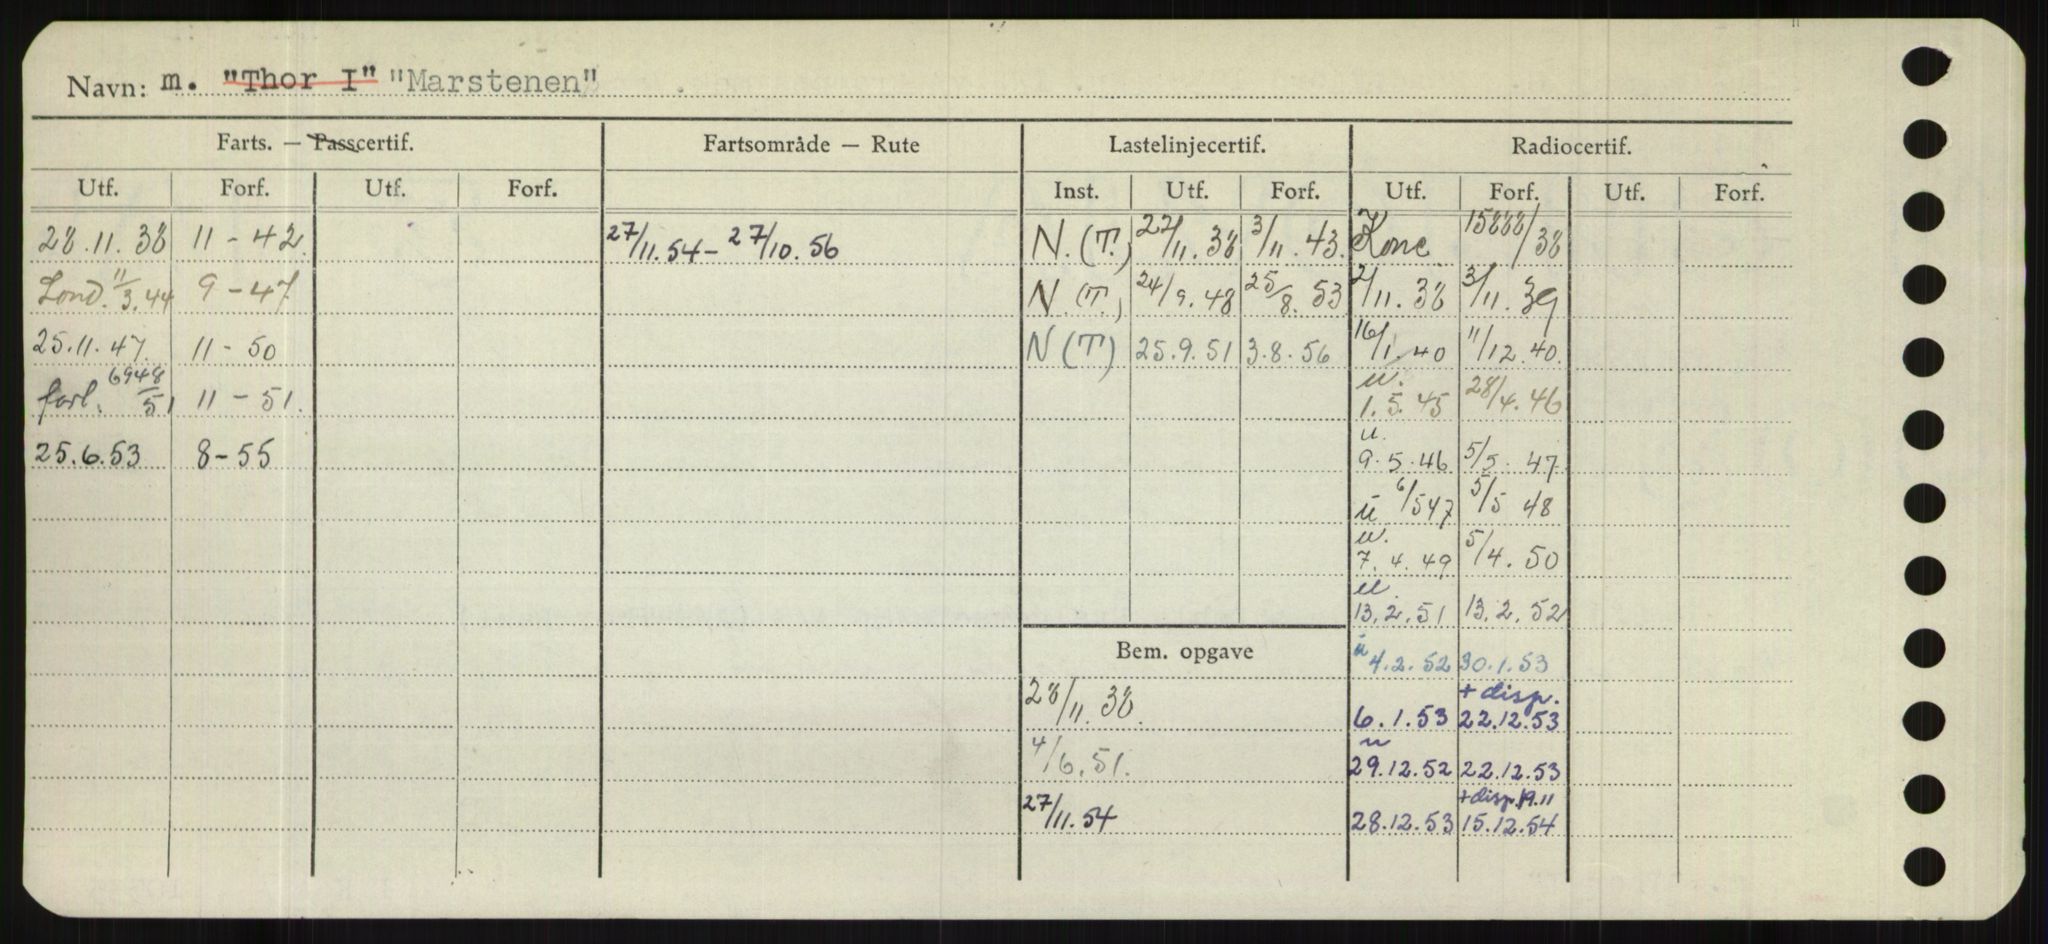 Navn: m. "Thor I" "Marstenen"
Farts. — Passcertif. Fartsområde — Rute Lastelinjecertif. Radiocertif.
Utf. Forf. Utf. Forf. Inst. Utf. Forf. Utf. Forf. Utf. Forf.
28.11.38 11-42. 27/11.54-27/10.56 N.(T.) 22/11.38 3/11.43. Konc 15888/38
Lond. 11/3.44 9-47 N.(T.) 24/9.48 25/8.53 2/11.38 3/11.39
25.11.47. 11-50 N(T) 25.9.51 3.8.56 16/1.40 11/12.40.
forl. 6948/51 11-51. u. 1.5.45 28/4.46
25.6.53 8-55 u. 9.5.46 5/5.47
u 6/547 5/5 48
u. 7.4.49 5/4.50
u. 13.2.51 13.2.52
Bem. opgave u 4.2.52 30.1.53
28/11.38. 6.1.53 + disp. 22.12.53
4/6.51. u 29.12.52 22.12.53
27/11.54 28.12.53 + disp. 19.11 15.12.54